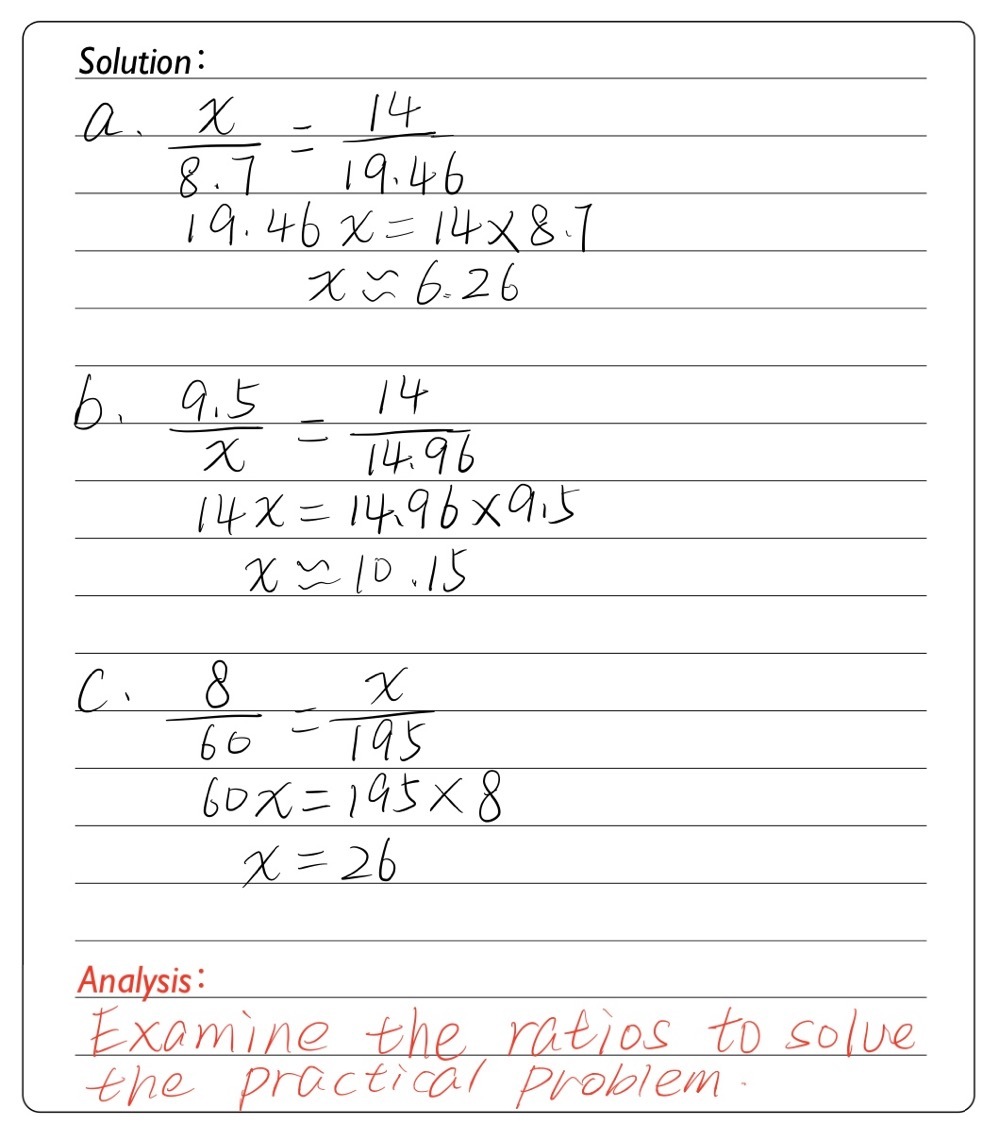 Solution:
a. x/8.7 = 14/19.46
19.46 x = 14 × 8.7
x ≈ 6.26
b. 9.5/x = 14/14.96
14x = 14.96 × 9.5
x ≈ 10.15
c. 8/60 = x/195
60x = 195 × 8
x = 26
Analysis:
Examine the ratios to solve
the practical problem.